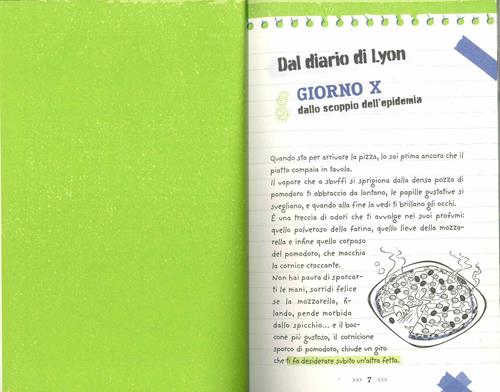 Dal diario di Lyon
GIORNO X
dallo scoppio dell'epidemia
Quando sta per arrivare la pizza, lo sai prima ancora che il
piatto compaia in tavola.
Il vapore che a sbuffi si sprigiona dalla densa pozza di
pomodoro ti abbraccia da lontano, le papille gustative si
svegliano, e quando alla fine la vedi ti brillano gli occhi.
È una treccia di odori che ti avvolge nei suoi profumi:
quello polveroso della farina, quello lieve della mozza-
rella e infine quello corposo
del pomodoro, che macchia
la cornice croccante.
Non hai paura di sporcar-
ti le mani, sorridi felice
se la mozzarella, fi-
lando, pende morbida
dallo spicchio... e il boc-
cone più gustoso, il cornicione
sporco di pomodoro, chiude un giro
che ti fa desiderare subito un'altra fetta.
>>> 7 <<<